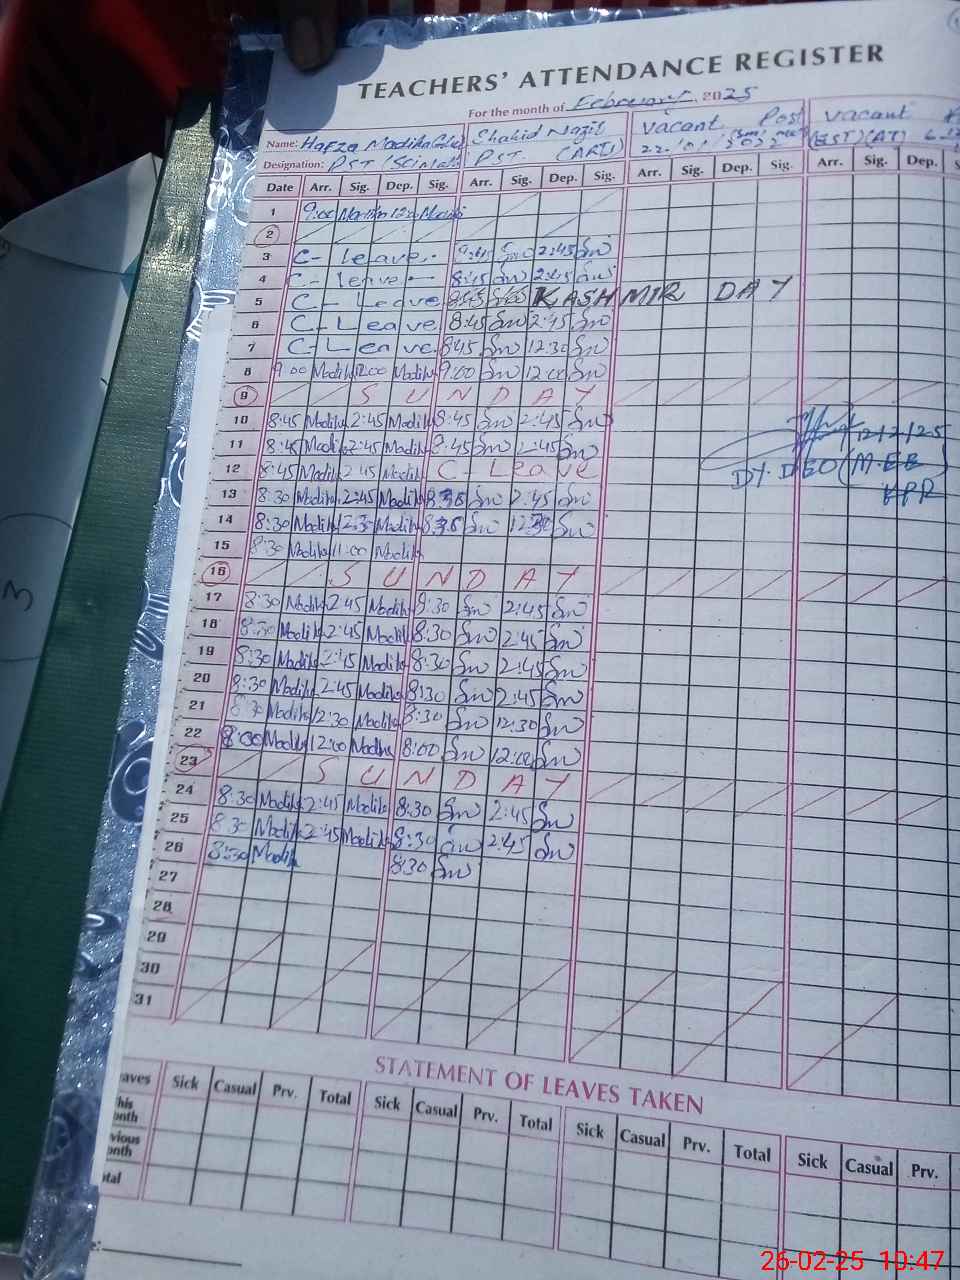 TEACHERS' ATTENDANCE REGISTER
For the month of February, 2025
Name: Hafza Madiha Shahid Nazir Vacant Post Vacant
Designation: PST (Sci Math) P.S.T. (ARTI) 22.101/2022 (EST)(AT)
Date Arr. Sig. Dep. Sig. Arr. Sig. Dep. Sig. Arr. Sig. Dep. Sig. Arr. Sig. Dep.
1 9:00
2
3 C- Leave. 2:45 Sno
4 C- leave 8:45 Sno 2:45 Sno
5 C- Leave KASHMIR DAY
6 C- Leave 8:45 Sno 2:45 Sno
7 C- Leave 8:45 Sno 12:30 Sno
8 9:00 Madiha 12:00 Madiha 9:00 Sno 12:00 Sno
9 SUNDAY
10 8:45 Madiha 2:45 Madiha 8:45 Sno 2:45 Sno
11 8:45 Madiha 2:45 Madiha 8:45 Sno 2:45 Sno
12/2/25
12 8:45 Madiha 2:45 Madiha C- Leave
DY. DEO (M.EE
13 8:30 Madiha 2:45 Madiha Sno 2:45 Sno
KPR
14 8:30 Madiha 12:30 Madiha Sno 12:30 Sno
15 8:30 Madiha 11:00 Madiha
16 SUNDAY
17 8:30 Madiha 2:45 Madiha Sno 2:45 Sno
18 8:30 Madiha 2:45 Madiha 8:30 Sno 2:45 Sno
19 8:30 Madiha 2:45 Madiha 8:30 Sno 2:45 Sno
20 8:30 Madiha 2:45 Madiha 8:30 Sno 2:45 Sno
21 8:30 Madiha 12:30 Madiha 8:30 Sno 12:30 Sno
22 8:00 Madiha 12:00 Madiha 8:00 Sno 12:00 Sno
23 SUNDAY
24 8:30 Madiha 2:45 Madiha 8:30 Sno 2:45 Sno
25 8:30 Madiha 2:45 Madiha 8:30 Sno 2:45 Sno
26 8:30 Madiha 8:30 Sno
27
28
29
30
31
STATEMENT OF LEAVES TAKEN
aves Sick Casual Prv. Total Sick Casual Prv. Total Sick Casual Prv. Total Sick Casual Prv.
his
onth
vious
onth
tal
3
26-02-25 10:47